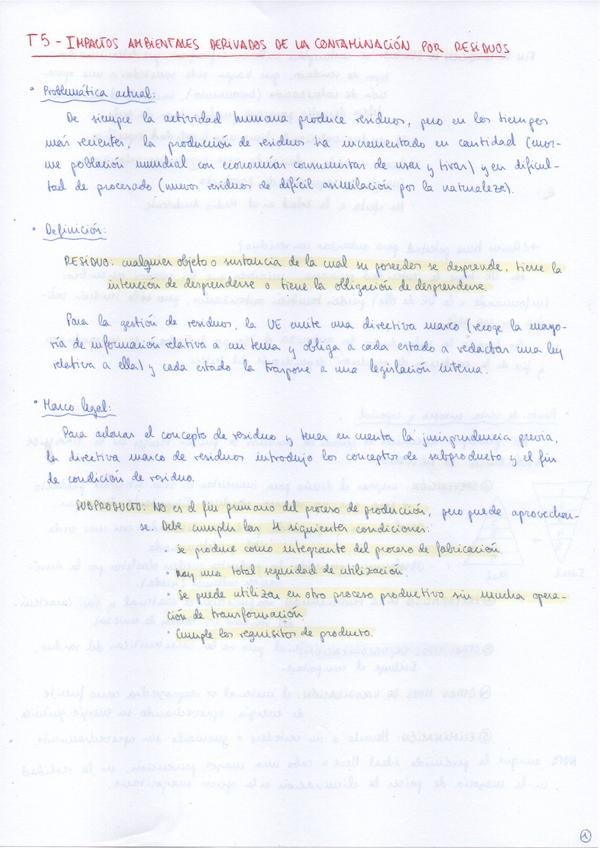 T5 - IMPACTOS AMBIENTALES DERIVADOS DE LA CONTAMINACIÓN POR RESIDUOS
• Problemática actual:
De siempre la actividad humana produce residuos, pero en los tiempos
más recientes, la producción de residuos ha incrementado en cantidad (enor-
me población mundial con economías consumistas de usar y tirar) y en dificul-
tad de procesado (nuevos residuos de difícil asimilación por la naturaleza).
• Definición:
RESIDUO: cualquier objeto o sustancia de la cual su poseedor se desprende, tiene la
intención de desprenderse o tiene la obligación de desprenderse.
Para la gestión de residuos, la UE emite una directiva marco (recoge la mayo-
ría de información relativa a un tema y obliga a cada estado a redactar una ley
relativa a ella) y cada estado la traspone a una legislación interna.
• Marco legal:
Para aclarar el concepto de residuo y tener en cuenta la jurisprudencia previa,
la directiva marco de residuos introdujo los conceptos de subproducto y el fin
de condición de residuo.
SUBPRODUCTO: NO es el fin primario del proceso de producción, pero puede aprovechar-
se. Debe cumplir las 4 siguientes condiciones:
• Se produce como integrante del proceso de fabricación.
• Hay una total seguridad de utilización.
• Se puede utilizar en otro proceso productivo sin mucha opera-
ción de transformación.
• Cumple los requisitos de producto.
1